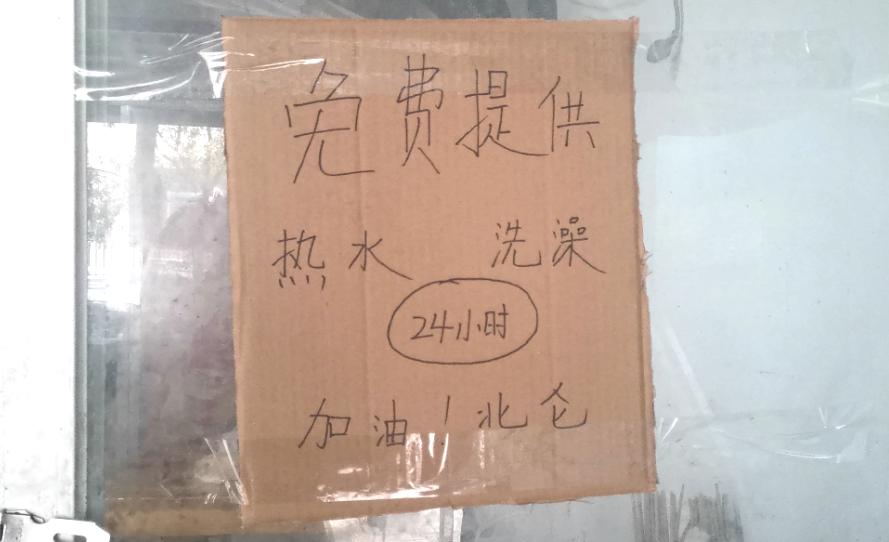 免费提供
热水 洗澡
24小时
加油！北仑